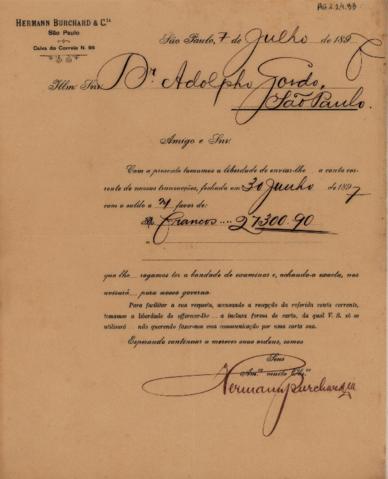 AG 2.2.4.93
HERMANN BURCHARD & Cia
São Paulo
Caixa do Correio N. 96
São Paulo, 7 de Julho de 1897
Illm. Snr. Dr. Adolpho Gordo,
São Paulo.
Amigo e Snr.
Com a presente tomamos a liberdade de enviar-lhe a conta cor-
rente de nossas transacções, fechada em 30 Junho de 1897
com o saldo a favor de:
Francos.... 27300.90
que lhe rogamos ter a bondade de examinar e, achando-a exacta, nos
avisará para nosso governo.
Para facilitar a sua resposta, accusando a recepção da referida conta corrente,
tomamos a liberdade de offerecer-lhe a inclusa forma de carta, da qual V. S. só se
utilisará não querendo fazer-nos essa communicação por uma carta sua.
Esperando continuar a merecer suas ordens, somos
Seus
Am.os muito Obr.os
Hermann Burchard & Cia